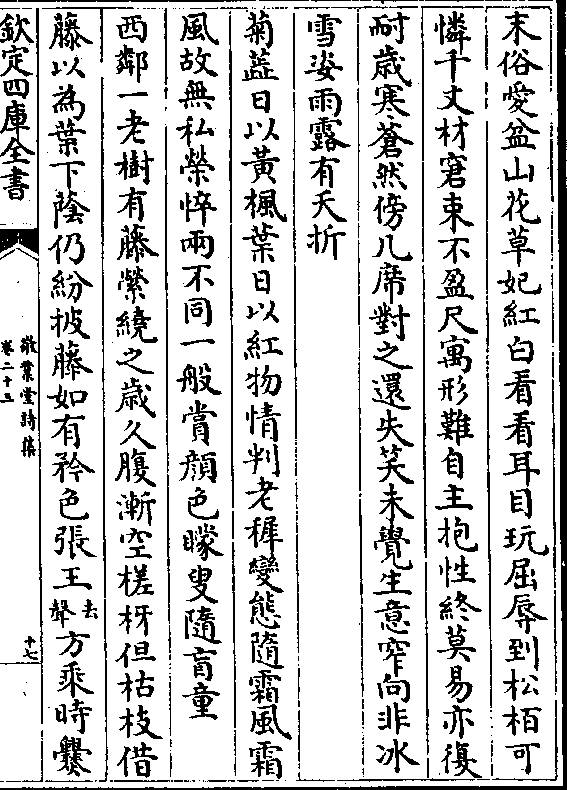 末俗愛盆山花草妃紅白看看耳目玩屈辱到松栢可
憐千丈材窘束不盈尺寓形難自主抱性終莫易亦復
耐歳寒蒼然傍几席對之還失笑未覺生意窄向非冰
雪姿雨露有夭折
菊蘂日以黃楓葉日以紅物情判老穉變態隨霜風霜
風故無私榮悴兩不同一般賞顔色矇叟隨盲童
西鄰一老樹有藤縈繞之歳久腹漸空槎枒但枯枝借
藤以為葉下蔭仍紛披藤如有矜色張王去聲方乘時爨
欽定四庫全書
敬業堂詩集
卷二十五
十七